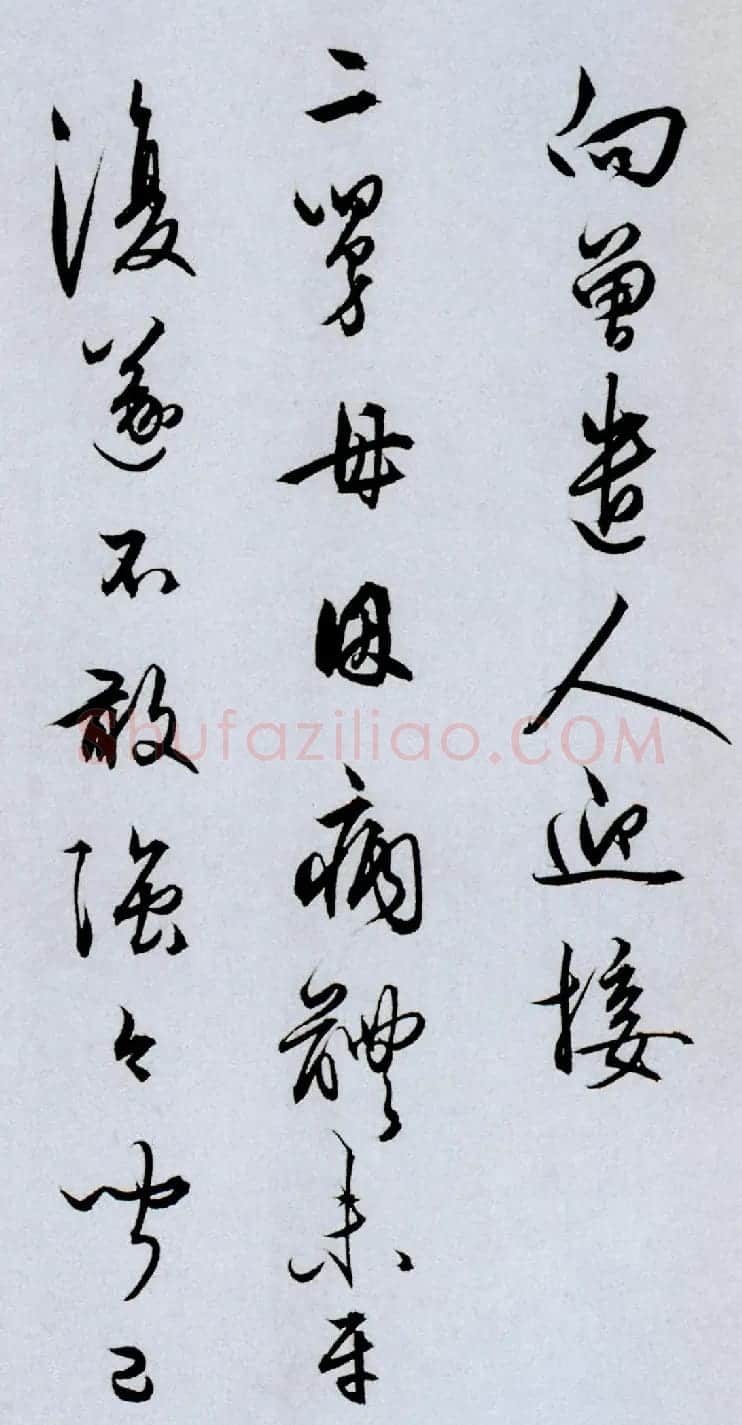 向曾遣人迎接
二舅母因病體未平
復遂不敢強今聞已
Shufaziliao.COM